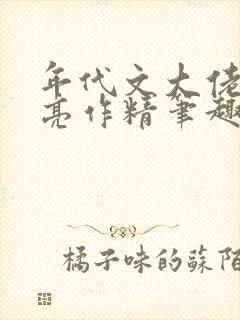 年代文大佬
亮作精笔趣
橘子味的蘇陌